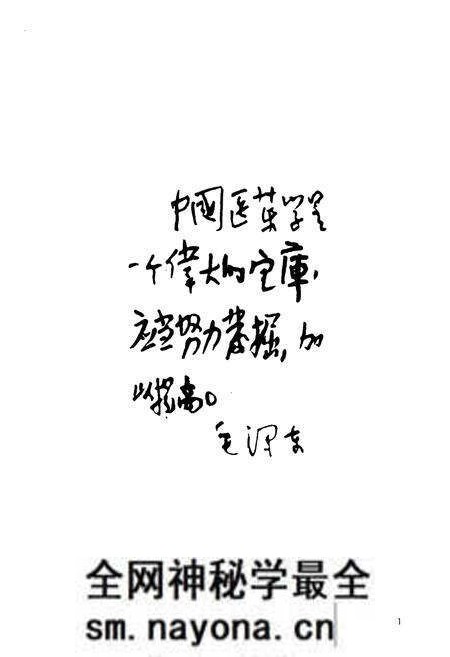 中國医药学是
一个偉大的宝庫，
应当努力发掘，加
以提高。
毛泽东
全网神秘学最全
sm.nayona.cn
1